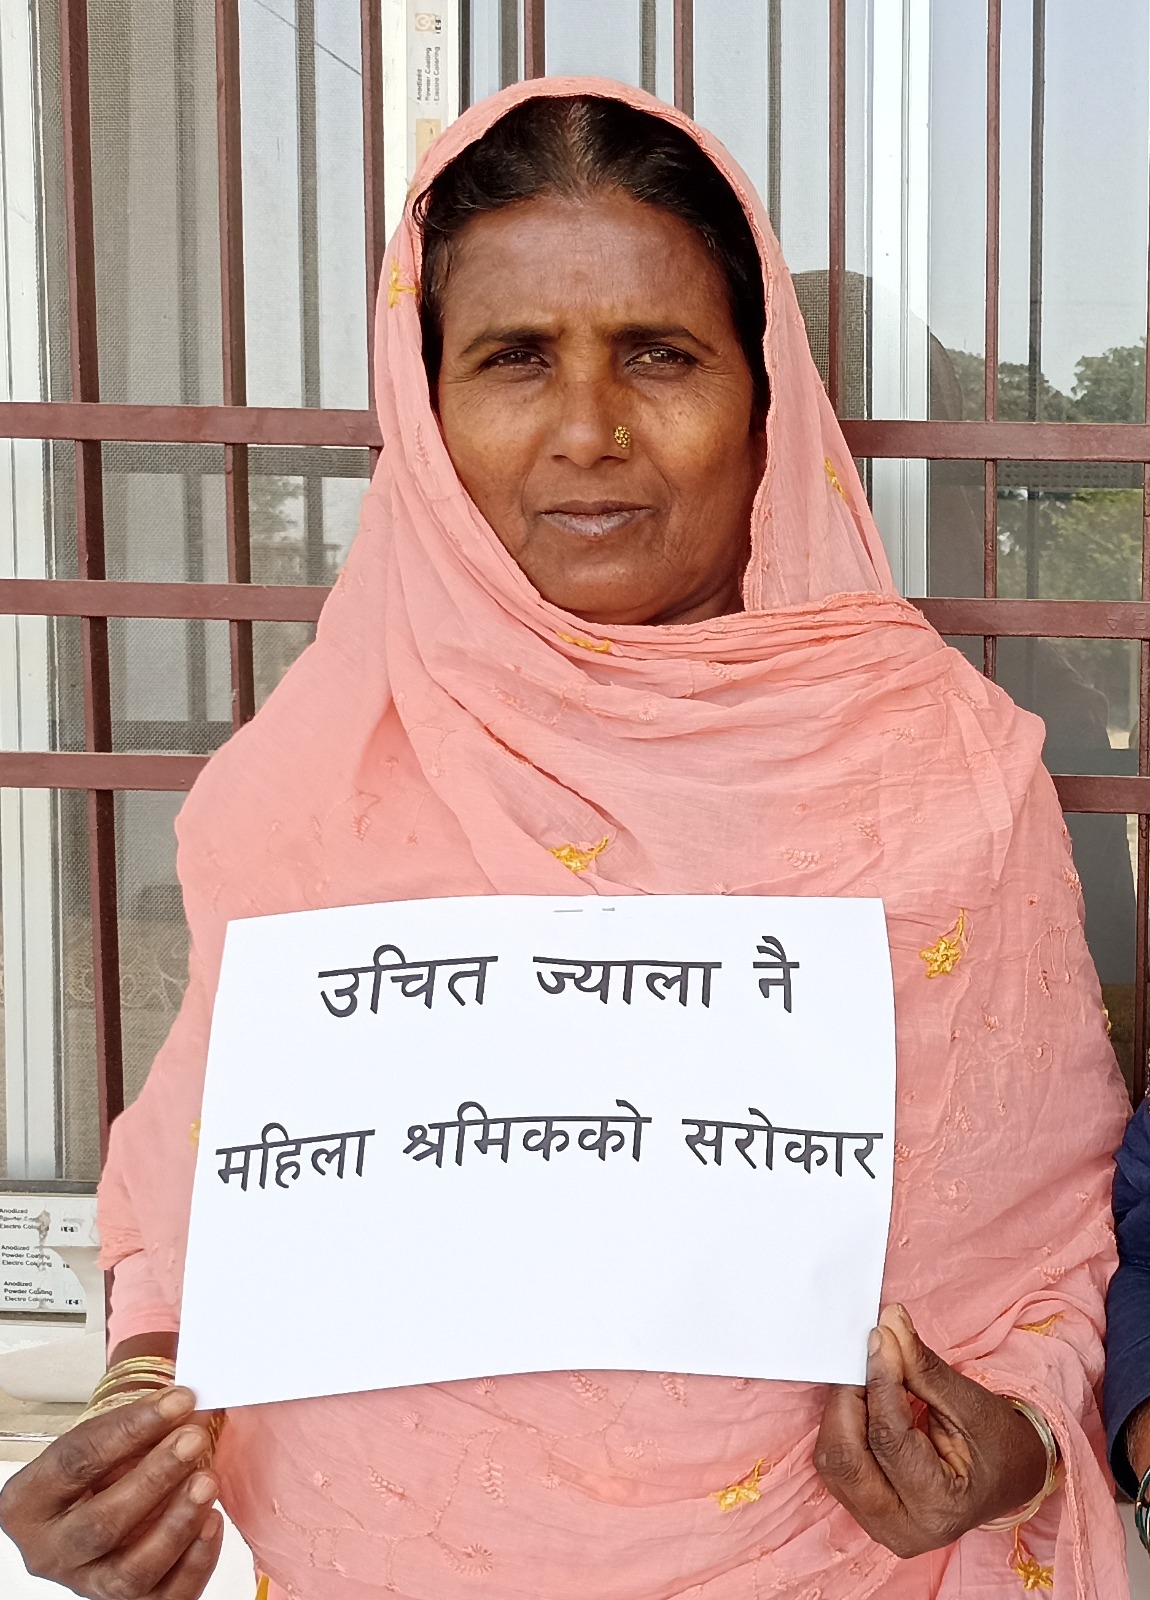 Anodized
Powder Coating
Electro Coloring
उचित ज्याला नै
महिला श्रमिकको सरोकार
Anodized
Electro
Anodized
Powder Coating
Electro Coloring
Anodized
Powder Coating
Electro Coloring